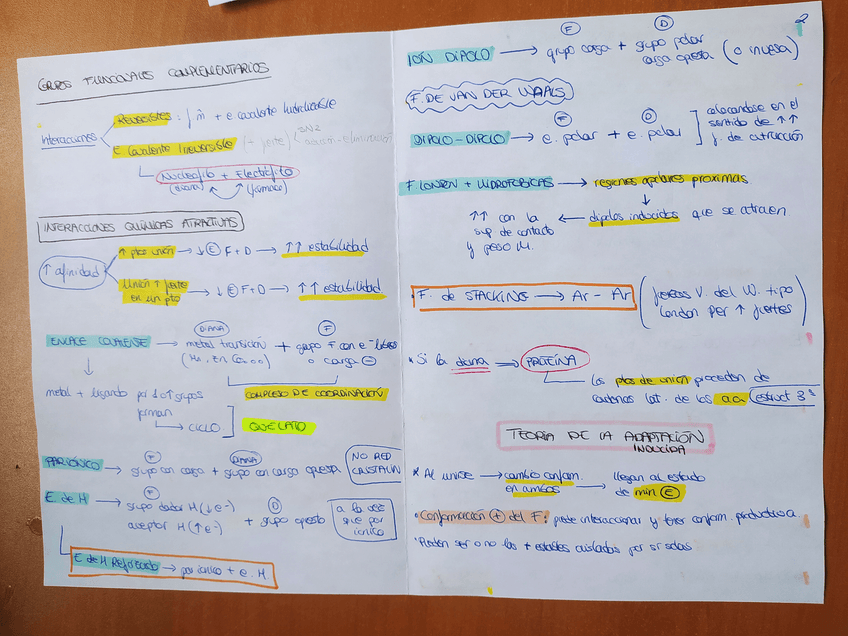 GRUPOS FUNCIONALES COMPLEMENTARIOS
Interacciones
Reversibles: + e covalente hidrolizable
E Covalente Irreversible (+ fuerte) SN2
Nucleófilo + Electrófilo
(diana) (fármaco)
INTERACCIONES QUÍMICAS ATRACTIVAS
↑ afinidad
↑ ptos unión → ↓ E F + D → ↑↑ estabilidad
Unión + fuerte
en un pto → ↓ E F + D → ↑↑ estabilidad
DIANA F
ENLACE COVALENTE → metal transición + grupo F con e⁻ libres
o carga ⊖
metal + ligando por 1 o ↑ grupos
COMPLEJO DE COORDINACIÓN
forman
→ CICLO
QUELATO
F DIANA
PAR IÓNICO → grupo con carga + grupo con carga opuesta
NO RED
CRISTALIN
E de H
F
→ grupo dador H (↓ e⁻)
aceptor H (↑ e⁻)
D
+ grupo opuesto
a la vez
que par
iónico
E de H Reforzado → par iónico + e. H.
2
F D
IÓN DIPOLO → grupo carga + grupo polar
carga opuesta (o inversa)
F. DE VAN DER WAALS
F D
DIPOLO-DIPOLO → e. polar + e. polar
colocandose en el
sentido de ↑↑
f. de atracción
F. LONDON + HIDROFOBICAS → regiones apolares proximas
↓
dipolos inducidos que se atraen
↑↑ con la
sup de contacto
y peso M.
F. de STACKING → Ar - Ar
(fuerzas V. del W. tipo
London pero ↑ fuertes)
• Si la diana → PROTEÍNA
Los ptos de unión proceden de
cadenas lat. de los aa (estruct 3ª
TEORIA DE LA ADAPTACIÓN
INDUCIDA
* Al unirse → cambio conform.
en ambos → llegan al estado
de min E
• Conformación ⊕ del F: puede interaccionar y tener conform. productiva.
• Pueden ser o no las + estables aisladas por si solas